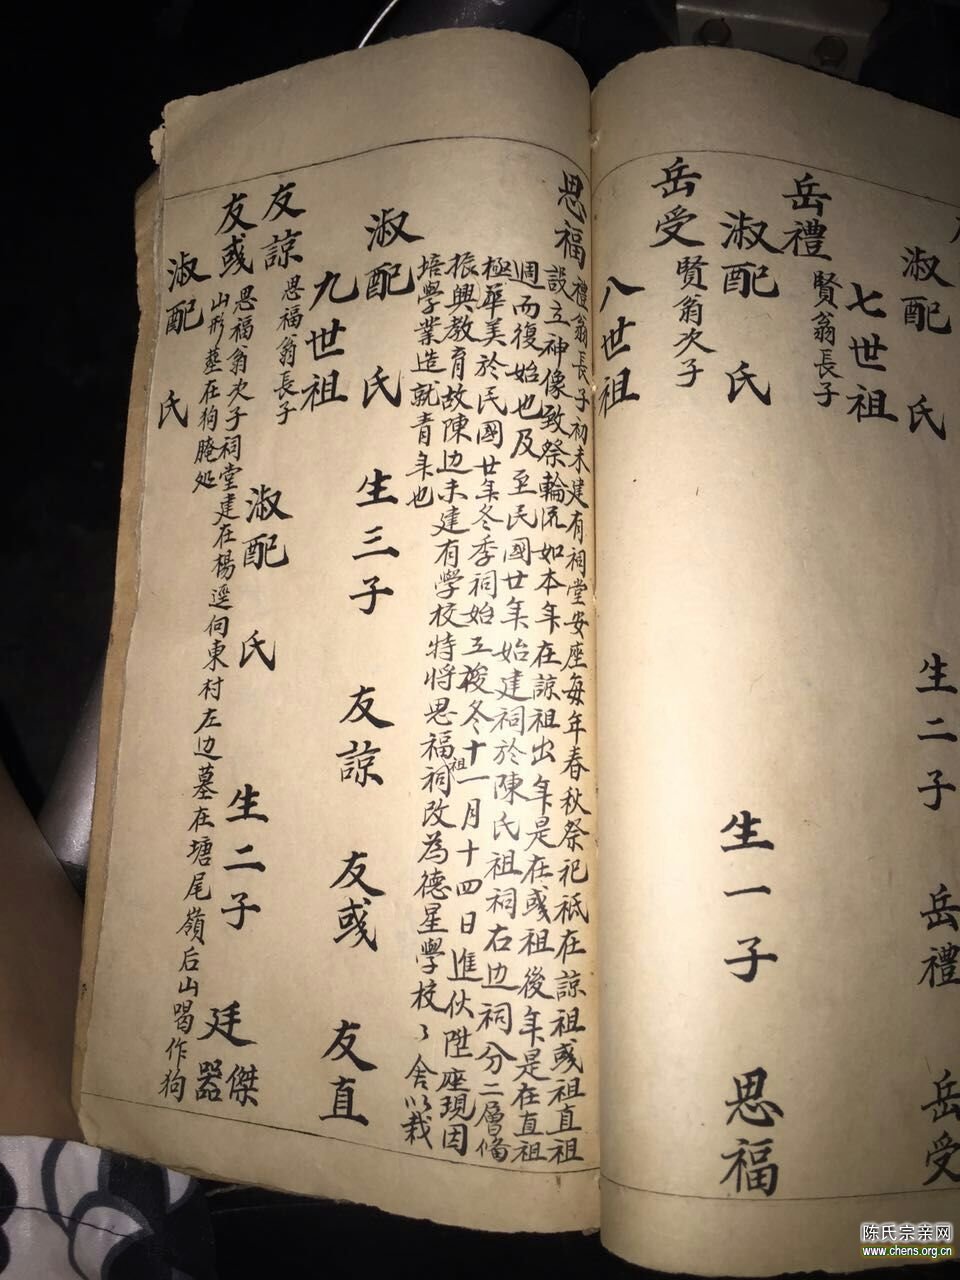 淑配 氏 生二子 岳禮 岳受
七世祖
岳禮 賢翁長子
淑配 氏 生一子 思福
岳受 賢翁次子
八世祖
思福 禮翁長子初未建有祠堂安座每年春秋祭祀祗在諒祖彧祖直祖
設立神像致祭輪流如本年在諒祖出年是在彧祖後年是在直祖
週而復始也及至民國廿年始建祠於陳氏祖祠右边祠分二層俻
極華美於民國廿年冬季祠始工竣冬十一月十四日進伙陞座現因
振興教育故陳边未建有學校特将思福祖祠改為德星學校
培學業造就青年也
淑配 氏 生三子 友諒 友彧 友直
九世祖
友諒 思福翁長子
淑配 氏 生二子 廷傑 器
友彧 思福翁次子祠堂建在楊逕向東村左边墓在塘尾嶺后山喝作狗
山形墓在狗腌処
淑配 氏
陈氏宗亲网
www.chens.org.cn